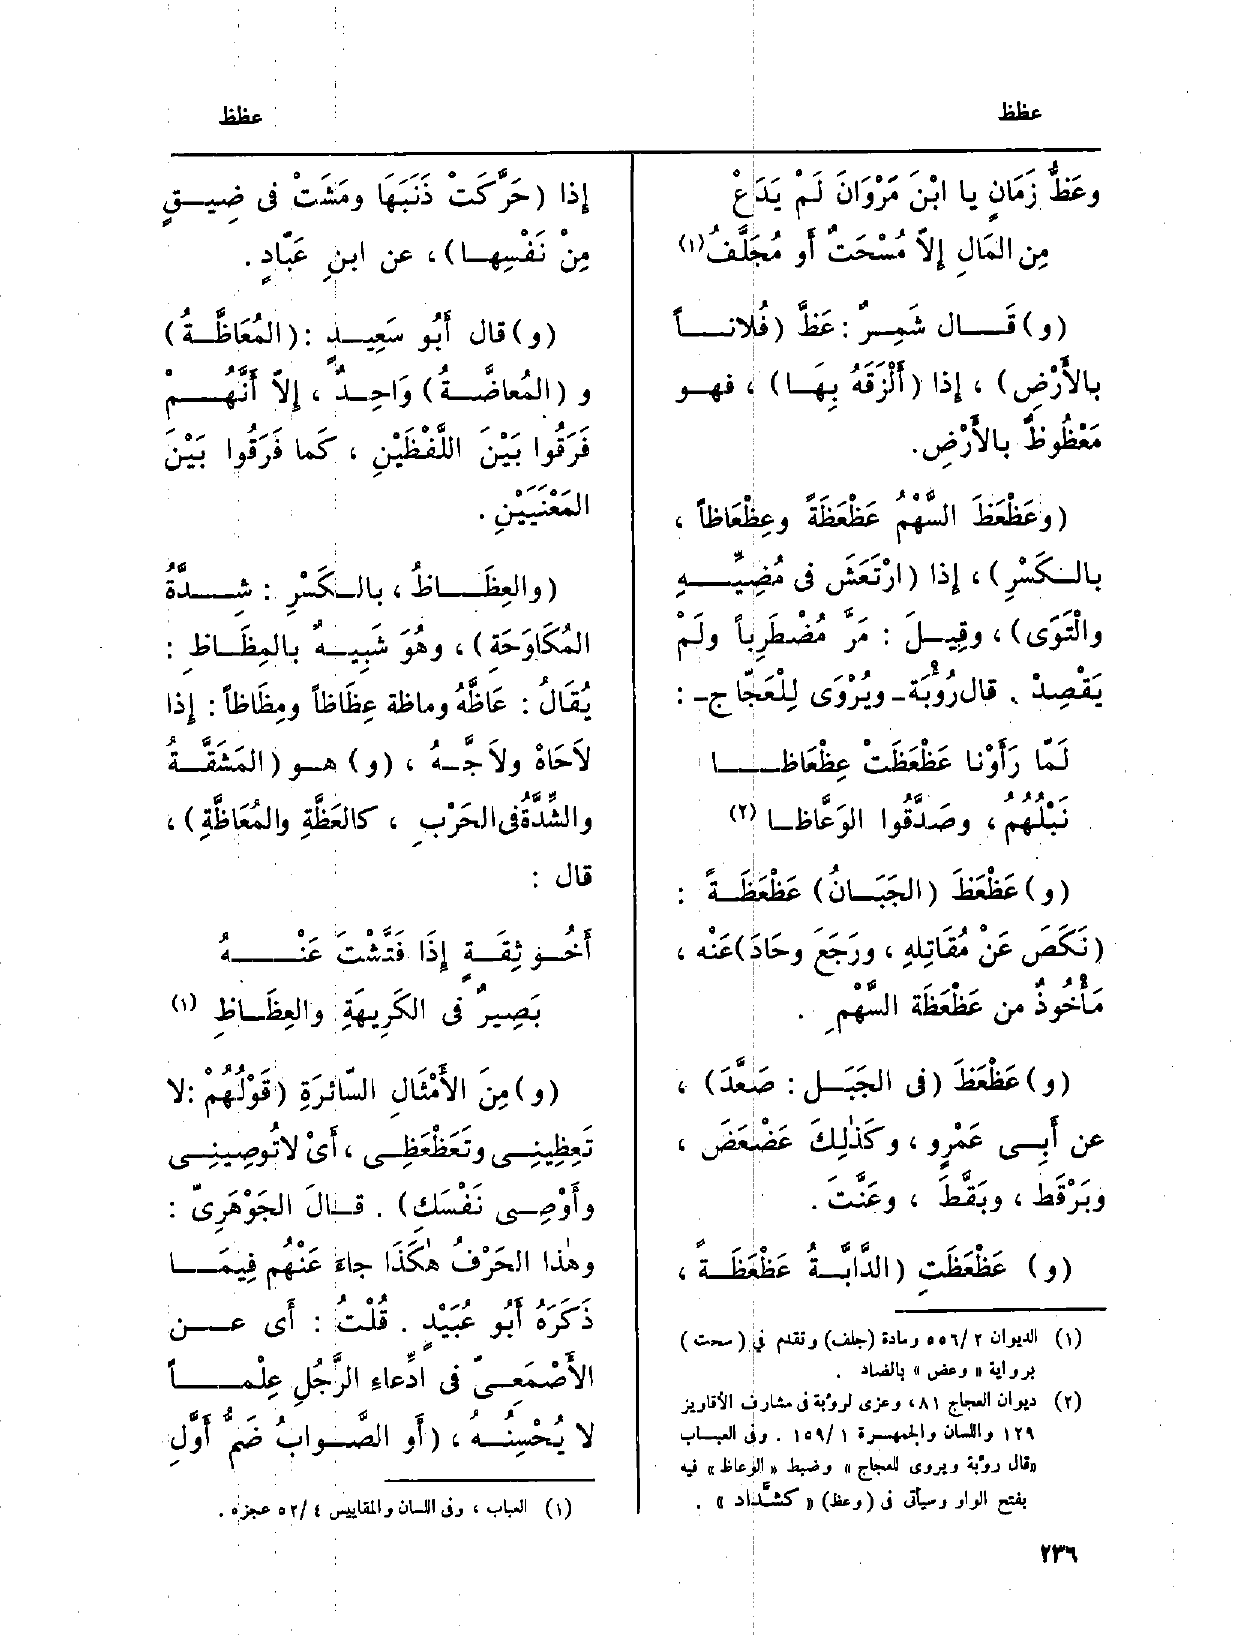 عظظ
عظظ
وعَظُّ زَمَانٍ يا ابْنَ مَرْوَانَ لَمْ يَدَعْ
مِن المَالِ إِلاَّ مُسْحَتٌ أَو مُجَلَّفُ (١)
(و) قَــال شَمِـرٌ : عَظَّ (فُلانــاً
بالأَرْضِ) ، إِذا (أَلْزَقَهُ بِهَـا) ، فهـو
مَعْظُوظٌ بالأَرْضِ.
(وعَظْعَظَ السَّهْمُ عَظْعَظَةً وعِظْعَاظاً ،
بالـكَسْرِ) ، إِذا (ارْتَعَشَ فى مُضِيِّـهِ
والْتَوَى) ، وقِيـلَ : مَرَّ مُضْطَرِباً ولَمْ
يَقْصِدْ . قال رُؤْبَة ـ ويُرْوَى لِلْعَجَّاج ـ :
لَمَّا رَأَوْنا عَظْعَظَتْ عِظْعَاظــا
نَبْلُهُمُ ، وصَدَّقُوا الوَعَّاظـا (٢)
(و) عَظْعَظَ (الجَبَـانُ) عَظْعَظَـةً :
(نَكَصَ عَنْ مُقَاتِلِهِ ، ورَجَعَ وحَادَ) عَنْه ،
مَأْخُوذٌ من عَظْعَظَة السَّهْمِ .
(و) عَظْعَظَ (فى الجَبَـل : صَعَّدَ) ،
عن أَبِـى عَمْرٍو ، وكَذٰلِكَ عَضْعَضَ ،
وبَرْقَطَ ، وبَقَّطَ ، وعَنَّتَ .
(و) عَظْعَظَتِ (الدَّابَّـةُ عَظْعَظَـةً ،
(١) الديوان ٢/ ٥٥٦ ومادة (جلف) وتقدم في (سحت)
برواية « وعض » بالضاد .
(٢) ديوان العجاج ٨١ ، وعزى لرؤبة فى مشارف الأقاريز
١٢٩ واللسان والجمهـرة ١/ ١٥٩ . وفى العبـاب
«قال رؤبة ويروى للعجاج » وضبط « الوعاظ » فيه
بفتح الواو وسيأتى فى (وعظ) « كشَدَّاد » .
إِذا (حَرَّكَتْ ذَنَبَهَا ومَشَتْ فى ضِيـقٍ
مِنْ نَفْسِهـا) ، عن ابنِ عَبَّادٍ .
(و) قال أَبُو سَعِيـدٍ : (المُعَاظَّـةُ)
و (المُعاضَّـةُ) وَاحِـدٌ ، إِلاَّ أَنَّهُـمْ
فَرَقُوا بَيْنَ اللَّفْظَيْنِ ، كما فَرَقُوا بَيْنَ
المَعْنَيَيْنِ .
(والعِظَــاظُ ، بالـكَسْرِ : شِــدَّةُ
المُكَاوَحَةِ) ، وهُوَ شَبِيـهٌ بالمِظَـاظِ :
يُقَالُ : عَاظَّهُ وماظة عِظَاظاً ومِظَاظاً : إِذا
لاَحَاهُ ولاَجَّـهُ ، (و) هـو (المَشَقَّـةُ
والشِّدَّةُ فى الحَرْبِ ، كالعَظَّةِ والمُعَاظَّةِ) ،
قال :
أَخُـو ثِقَـةٍ إِذَا فَتَّشْتَ عَنْــهُ
بَصِيرٌ فى الكَرِيهَةِ والعِظَـاظِ (١)
(و) مِنَ الأَمْثَالِ السَّائرَةِ (قَوْلُهُمْ : لا
تَعِظِينِـى وتَعَظْعَظِـى ، أَىْ لا تُوصِينِـى
وأَوْصِـى نَفْسَكِ) . قـالَ الجَوْهَرِىّ :
وهٰذا الحَرْفُ هٰكَذَا جاءَ عَنْهُم فِيمَــا
ذَكَرَهُ أَبُو عُبَيْدٍ . قُلْتُ : أَى عــن
الأَصْمَعِـىِّ فى ادِّعاءِ الرَّجُلِ عِلْمــاً
لا يُحْسِنُـه ، (أَو الصَّـوابُ ضَمُّ أَوَّلِ
(١) العباب ، وفى اللسان والمقاييس ٤/ ٥٢ عجزه .
٢٣٦